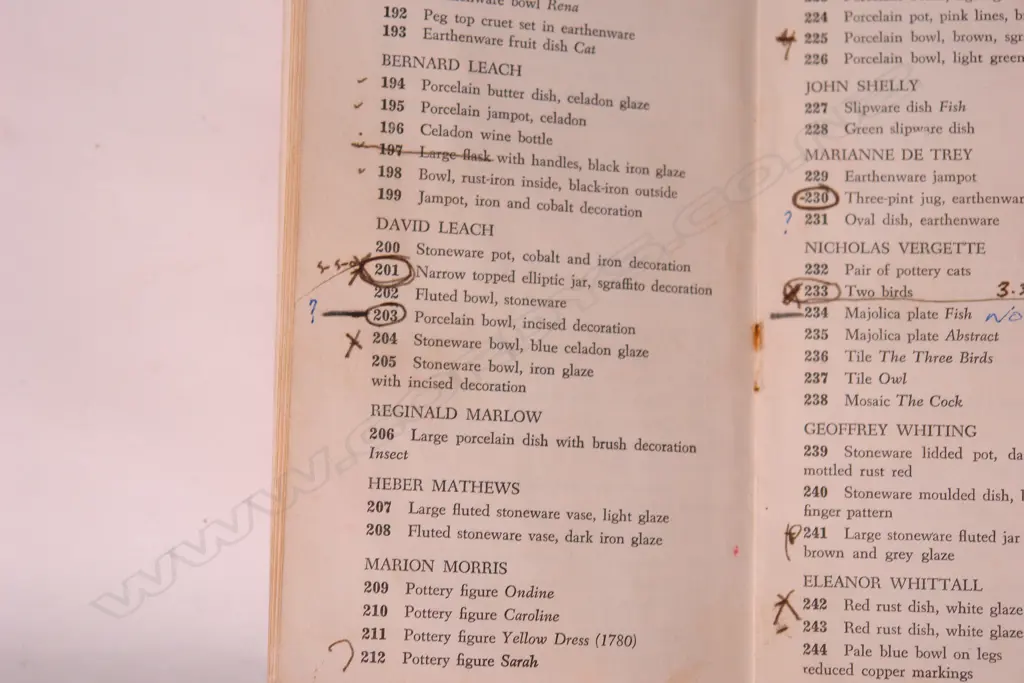 bowl Rena
192 Peg top cruet set in earthenware
193 Earthenware fruit dish Cat
BERNARD LEACH
194 Porcelain butter dish, celadon glaze
195 Porcelain jampot, celadon
196 Celadon wine bottle
197 Large flask with handles, black iron glaze
198 Bowl, rust-iron inside, black-iron outside
199 Jampot, iron and cobalt decoration
DAVID LEACH
200 Stoneware pot, cobalt and iron decoration
201 Narrow topped elliptic jar, sgraffito decoration
202 Fluted bowl, stoneware
? 203 Porcelain bowl, incised decoration
X 204 Stoneware bowl, blue celadon glaze
205 Stoneware bowl, iron glaze
with incised decoration
REGINALD MARLOW
206 Large porcelain dish with brush decoration
Insect
HEBER MATHEWS
207 Large fluted stoneware vase, light glaze
208 Fluted stoneware vase, dark iron glaze
MARION MORRIS
209 Pottery figure Ondine
210 Pottery figure Caroline
211 Pottery figure Yellow Dress (1780)
212 Pottery figure Sarah
224 Porcelain pot, pink lines,
225 Porcelain bowl, brown, sgr
226 Porcelain bowl, light green
JOHN SHELLY
227 Slipware dish Fish
228 Green slipware dish
MARIANNE DE TREY
229 Earthenware jampot
230 Three-pint jug, earthenwar
? 231 Oval dish, earthenware
NICHOLAS VERGETTE
232 Pair of pottery cats
X 233 Two birds
234 Majolica plate Fish NO
235 Majolica plate Abstract
236 Tile The Three Birds
237 Tile Owl
238 Mosaic The Cock
GEOFFREY WHITING
239 Stoneware lidded pot, da
mottled rust red
240 Stoneware moulded dish,
finger pattern
241 Large stoneware fluted jar
brown and grey glaze
ELEANOR WHITTALL
X 242 Red rust dish, white glaze
243 Red rust dish, white glaze
244 Pale blue bowl on legs
reduced copper markings